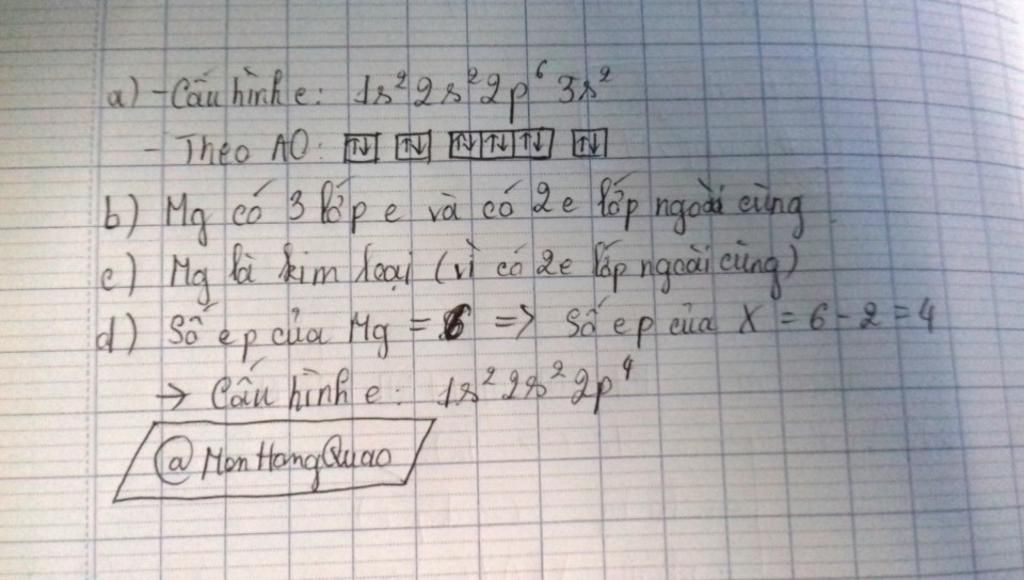 a) - Cấu hình e: 1s² 2s² 2p⁶ 3s²
- Theo AO: ↑↓ ↑↓ ↑↓ ↑↓ ↑↓ ↑↓
b) Mg có 3 lớp e và có 2e lớp ngoài cùng
c) Mg là kim loại (vì có 2e lớp ngoài cùng)
d) Số e p của Mg = 6 => Số e p của X = 6 - 2 = 4
→ Cấu hình e: 1s² 2s² 2p⁴
@MonHongQuao